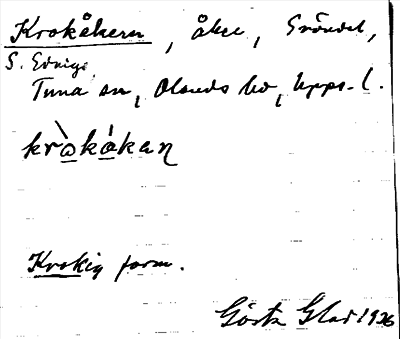 Krokåkern, åker, Gröndal,
S. Edinge
Tuna sn, Olands hd, Upps. l.
kròkákaɳ
Krokig form.
Gösta Glad 1926